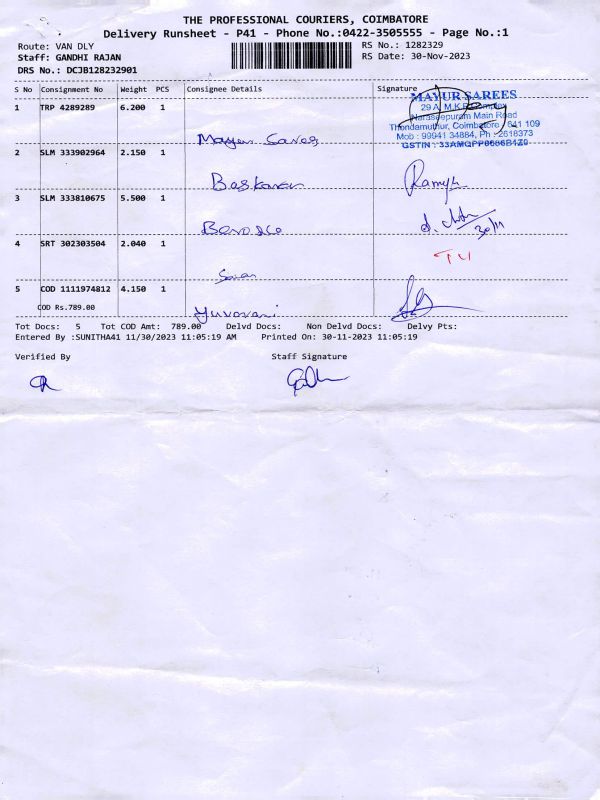 THE PROFESSIONAL COURIERS, COIMBATORE
Delivery Runsheet - P41 - Phone No.:0422-3505555 - Page No.:1
Route: VAN DLY
RS No.: 1282329
Staff: GANDHI RAJAN
RS Date: 30-Nov-2023
DRS No.: DCJB128232901
S No Consignment No Weight PCS Consignee Details Signature
1 TRP 4289289 6.200 1
MAYUR SAREES
29 A, M.K.P.
Naraseepuram Main Road
Thondamuthur, Coimbatore - 641 109
Mob : 99941 34884, Ph : 2618373
GSTIN :
Mayur Sarees
2 SLM 333902964 2.150 1
Baskaran
Ramya
3 SLM 333810675 5.500 1
30/11
4 SRT 302303504 2.040 1
5 COD 1111974812 4.150 1
COD Rs.789.00
Yuvarani
Tot Docs: 5 Tot COD Amt: 789.00 Delvd Docs: Non Delvd Docs: Delvy Pts:
Entered By :SUNITHA41 11/30/2023 11:05:19 AM Printed On: 30-11-2023 11:05:19
Verified By Staff Signature